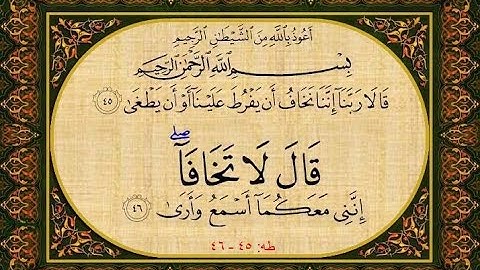 أَعُوذُ بِاللَّهِ مِنَ الشَّيْطَانِ الرَّجِيمِ
بِسْمِ اللَّهِ الرَّحْمَٰنِ الرَّحِيمِ
قَالَا رَبَّنَآ إِنَّنَا نَخَافُ أَن يَفْرُطَ عَلَيْنَآ أَوْ أَن يَطْغَىٰ ٤٥
قَالَ لَا تَخَافَآ ۖ
إِنَّنِي مَعَكُمَآ أَسْمَعُ وَأَرَىٰ ٤٦
طه: ٤٥ - ٤٦